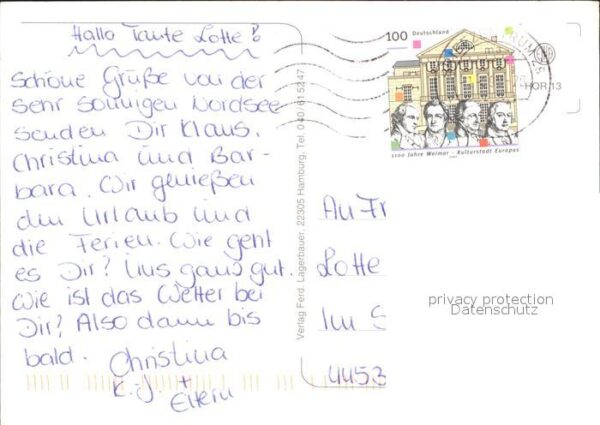 Hallo Tante Lotte!
Schöne Grüße von der
sehr sonnigen Nordsee
senden Dir Klaus,
Christina und Bar-
bara. Wir genießen
den Urlaub und
die Ferien. Wie geht
es Dir? Uns ganz gut.
Wie ist das Wetter bei
Dir? Also dann bis
bald. Christina
K.-J. + Eltern
Verlag Ferd. Lagerbauer, 22305 Hamburg, Tel. 040/615247
100 Deutschland
1100 Jahre Weimar - Kulturstadt Europas
HOR 13
An Fr
Lotte
Im S
4453
privacy protection
Datenschutz